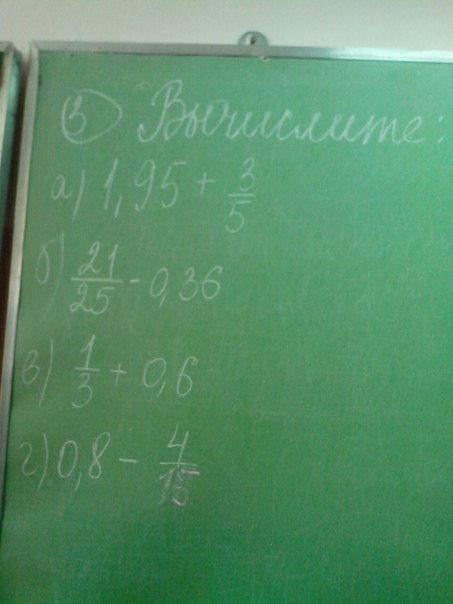 3) Вычислите:
а) 1,95 + 3/5
б) 21/25 - 0,36
в) 1/3 + 0,6
г) 0,8 - 4/15